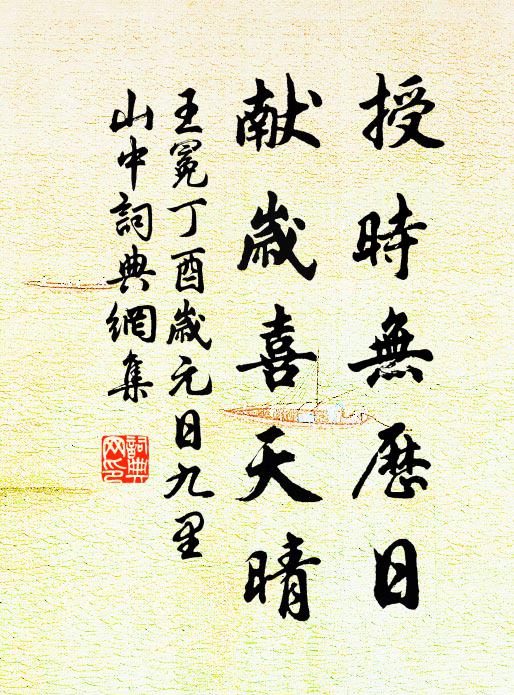 授時無歷日
献歳喜天晴
王冕丁酉歳元日九里
山中詞典網集
詞典网印